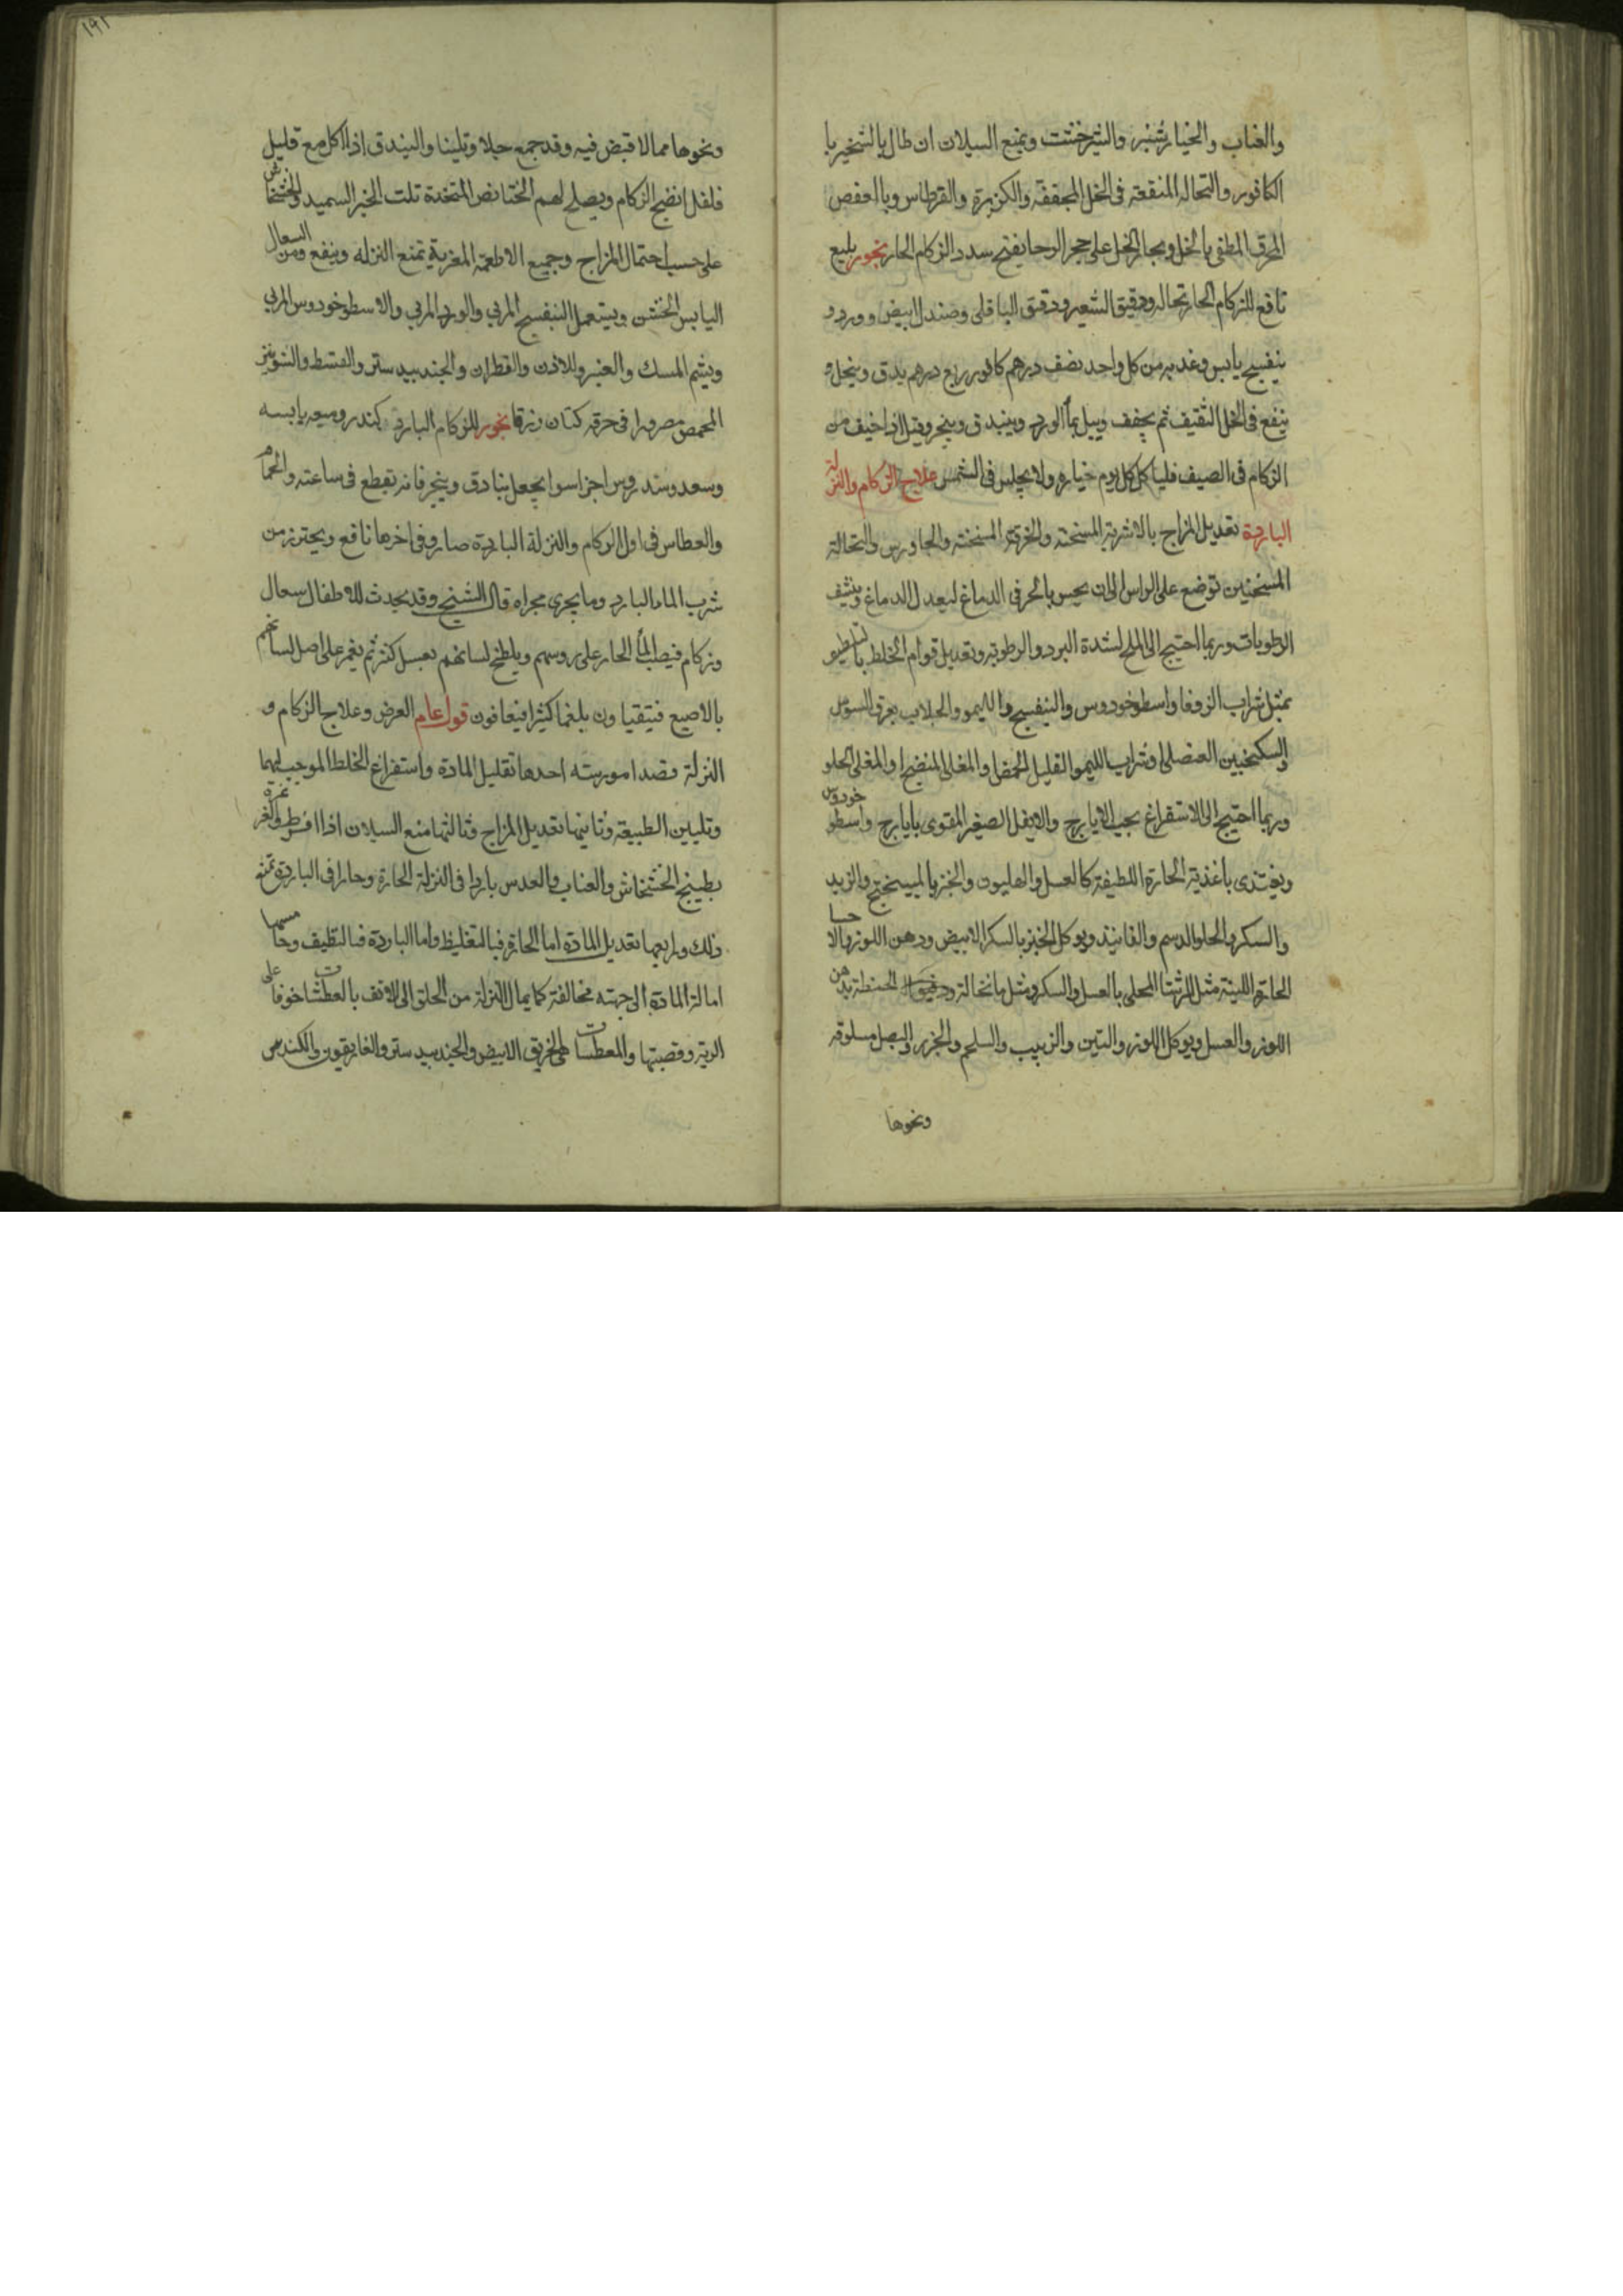 والعناب والخيار شنبر والشيرخشت ويمنع السيلان ان طال بالتبخير با
الكافور والنخاله المنقعة فى الخل المجففة والكزبرة والقرطاس وبا العفص
المحرق المطفى بالخل وبخار الخل على حجر الرحا يفتح سدد الزكام الحار بخور بليغ
نافع للزكام الحار نخاله ودقيق الشعير ودقيق الباقلى وصندل ابيض وورد و
بنفسج يابس من كل واحد نصف درهم كافور ربع درهم يدق وينخل و
ينقع فى الخل الثقيف ثم يجفف ويبل بمأ الورد ويبندق ويبخر وقيل اذا خيف من
الزكام فى الصيف فلياكل كل يوم خياره ولا يجلس فى الشمس علاج الزكام والنزلة
الباردة تعديل المزاج بالاشربة المسخنه والخرقة المسخنه والجاورس والنخالة
المسخنين توضع على الراس الى ان يحس بالحر فى الدماغ ليعدل الدماغ وينشف
الرطوبات وربما احتيج الى الملح لشدة البرد والرطوبة وتعديل قوام الخلط بالتلطيو
بمثل شراب الزوفا واسطوخودوس والبنفسج والليمو والجلاب بعرق السوس
والسكنجبين العنصلى او شراب الليمو القليل الحمض او المغلى المنضج او المغلى الحلو
وربما احتيج الى الاستفراغ بحب الايارج والاريفل الصغير المقوى بايارج واسطوخودوس
ويغتذى باغذية الحارة اللطيفة كالعسل والهليون والخبز بالميبختج والزبد
والسكر والحلو الدسم والفانيذ ويوكل الخبز بالسكر الابيض ودهن اللوز والاحسا
الحارة اللينة مثل الرشتا المحلى بالعسل والسكر ومثل ما نخالة ودقيق الحنطة بدهن
اللوز والعسل ويوكل اللوز والتين والزبيب والسلجم والجزر والبصل مسلوقه
ونحوها
١٩٢
ونحوها مما لا قبض فيه وقد جمع جلا وتليينا والبندق اذا اكل مع قليل
فلفل انضج الزكام ويصلح لهم المتخدة تلت الخبز السميد والخشخاش
على حسب احتمال المزاج وجميع الاطعمة المغرية تمنع النزله وينفع ومن السعال
اليابس الخشن ويستعمل البنفسج المربي والورد المربي والاسطوخودوس المربي
ويشم المسك والعنبر واللادن والقطران والجندبيدستر والقسط والشونيز
المحمص مصرورا فى خرقه كتان زرقا بخور للزكام البارد كندر وميعه يابسه
وسعد وسندروس اجزا سوا يجعل بنادق ويبخر فانه يقطع فى ساعته والحمام
والعطاس فى اول الزكام والنزلة الباردة ضار وفى اخرها نافع ويحترز من
شرب الما البارد وما يجرى مجراه قال الشيخ وقد يحدث للاطفال سعال
وزكام فيصب المأ الحار على روسهم ويلطخ لسانهم بعسل كثير ثم يغمز على اصل لسانهم
بالاصبع فيتقياون بلغما كثيرا فيعافون قول عام العرض وعلاج الزكام و
النزلة قصدا مور سته احدها تقليل المادة واستفراغ الخلط الموجب لهما
وتليين الطبيعة وثانيها تعديل المزاج وثالثها منع السيلان اذا افرط والغرغرة
بطبيخ الخشخاش والعناب والعدس باردا فى النزلة الحارة وحارا فى الباردة تمنع
ذلك ورابعها تعديل المادة اما الحارة فبالتغليظ واما الباردة فبالتلطيف وخامسها
امالة المادة الى جهته مخالفة كما يمال النزلة من الحلق الى الانف بالعطشات خوفا على
الرية وقصبتها والمعطسات هى الخربق الابيض والجندبيدستر والغاريقون والكندس